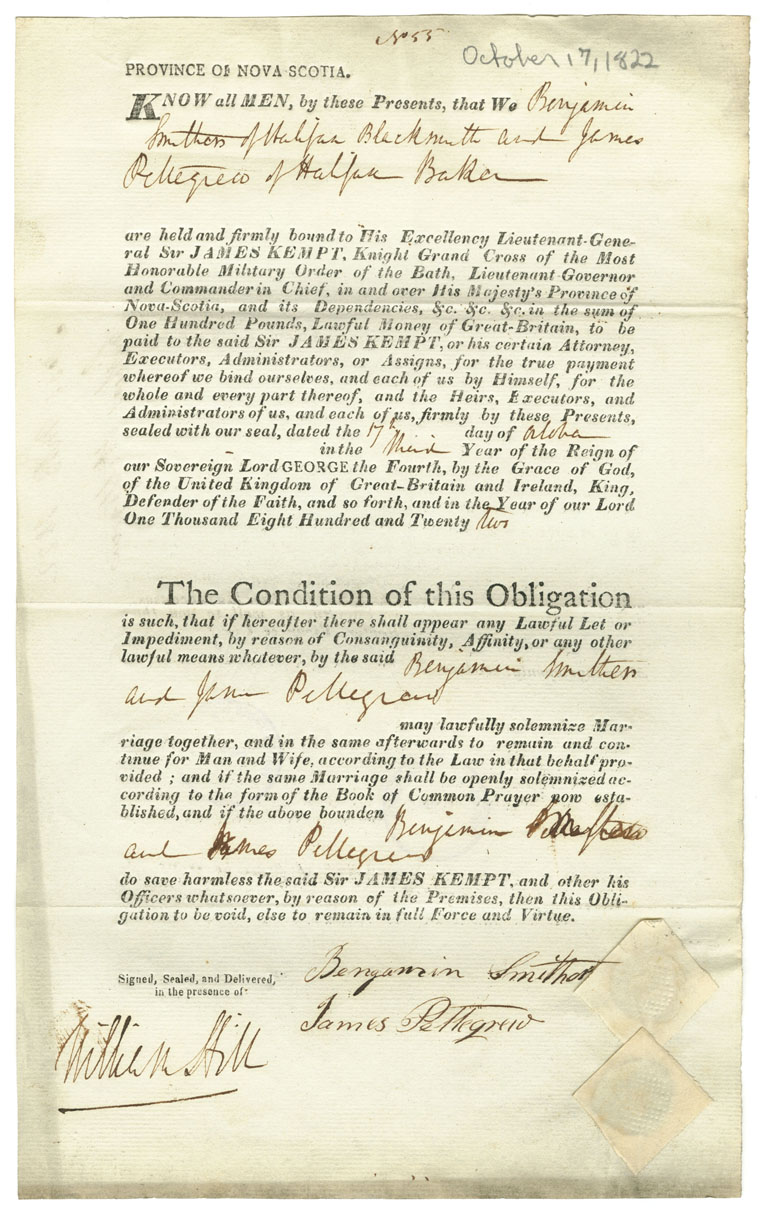 No 55
October 17, 1822
PROVINCE OF NOVA SCOTIA.
KNOW all MEN, by these Presents, that We Benjamin
Smithers of Halifax Blacksmith and James
Pellegrew of Halifax Baker
are held and firmly bound to His Excellency Lieutenant-Gene-
ral Sir JAMES KEMPT, Knight Grand Cross of the Most
Honorable Military Order of the Bath, Lieutenant Governor
and Commander in Chief, in and over His Majesty's Province of
Nova-Scotia, and its Dependencies, &c. &c. &c. in the sum of
One Hundred Pounds, Lawful Money of Great-Britain, to be
paid to the said Sir JAMES KEMPT, or his certain Attorney,
Executors, Administrators, or Assigns, for the true payment
whereof we bind ourselves, and each of us by Himself, for the
whole and every part thereof, and the Heirs, Executors, and
Administrators of us, and each of us, firmly by these Presents,
sealed with our seal, dated the 17th day of October
in the Third Year of the Reign of
our Sovereign Lord GEORGE the Fourth, by the Grace of God,
of the United Kingdom of Great-Britain and Ireland, King,
Defender of the Faith, and so forth, and in the Year of our Lord
One Thousand Eight Hundred and Twenty two
The Condition of this Obligation
is such, that if hereafter there shall appear any Lawful Let or
Impediment, by reason of Consanguinity, Affinity, or any other
lawful means whatever, by the said Benjamin Smithers
and Jane Pellegrew
may lawfully solemnize Mar-
riage together, and in the same afterwards to remain and con-
tinue for Man and Wife, according to the Law in that behalf pro-
vided ; and if the same Marriage shall be openly solemnized ac-
cording to the form of the Book of Common Prayer now esta-
blished, and if the above bounden Benjamin
and James Pellegrew
do save harmless the said Sir JAMES KEMPT, and other his
Officers whatsoever, by reason of the Premises, then this Obli-
gation to be void, else to remain in full Force and Virtue.
Signed, Sealed, and Delivered,
in the presence of
Benjamin Smithers
James Pettegrew
William Hill